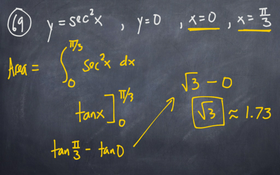 69 y = sec²x , y = 0 , x = 0 , x = π/3
Area = ∫₀^π/3 sec²x dx
tan x ]₀^π/3
tan π/3 − tan 0
√3 − 0
√3 ≈ 1.73